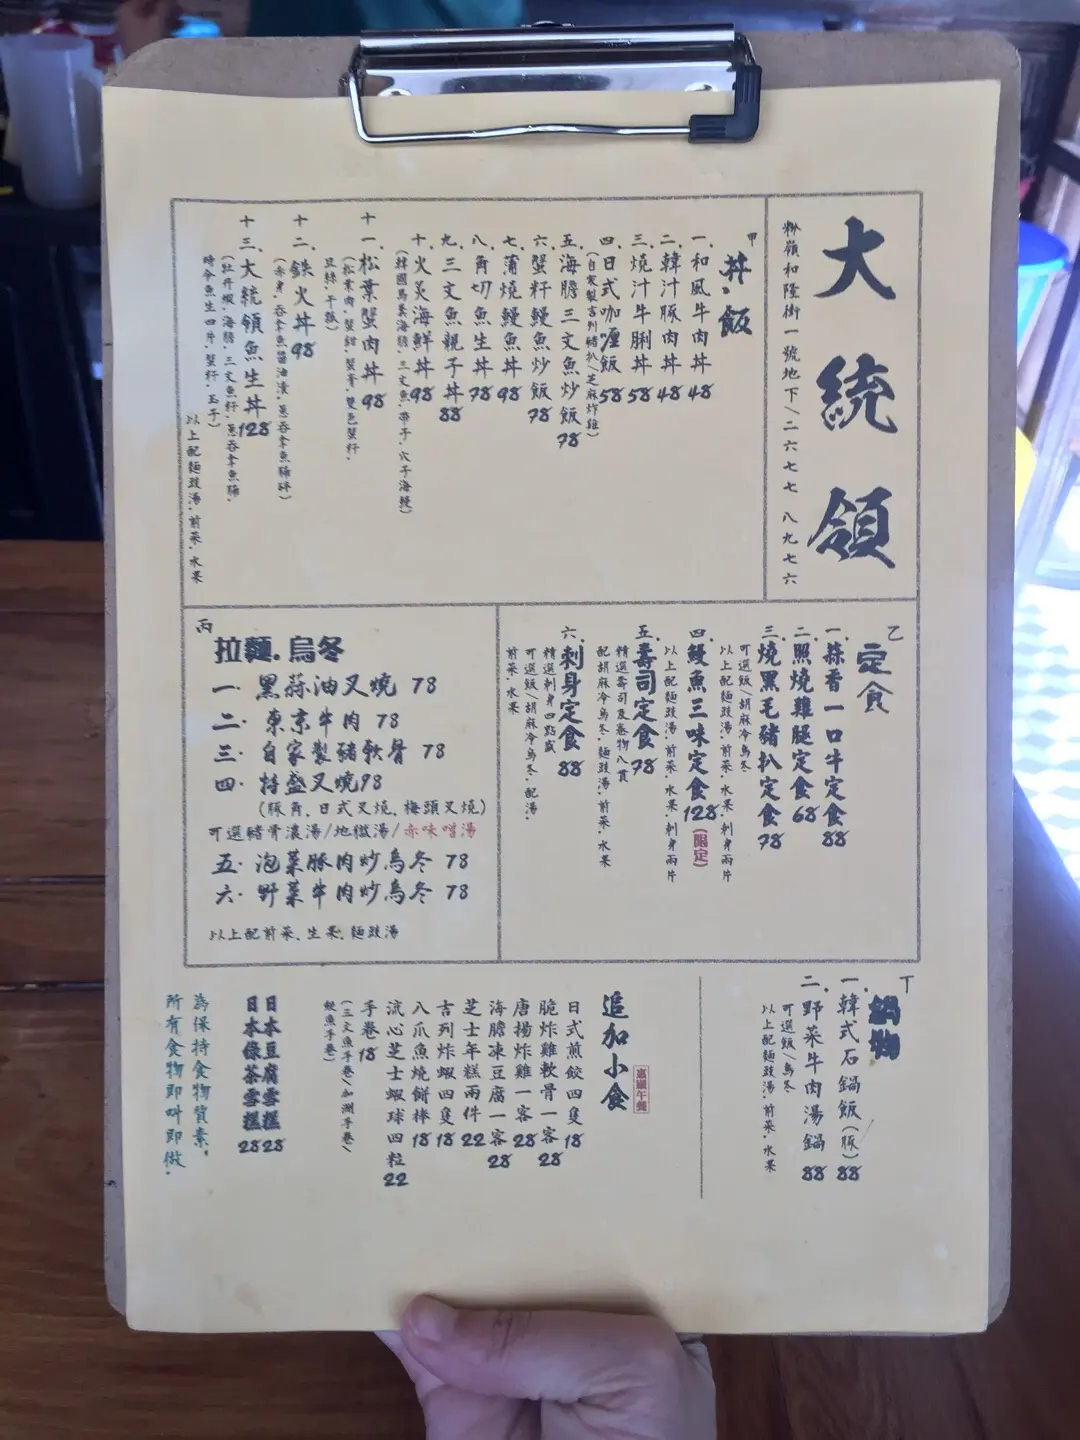 大統領
粉嶺和隆街一號地下/二六七七 八九七六
甲
丼.飯
一.和風牛肉丼48
二.韓汁豚肉丼48
三.燒汁牛脷丼58
四.日式咖喱飯58
(自家製吉列豬扒/芝麻炸雞)
五.海膽三文魚炒飯78
六.蟹籽鰻魚炒飯78
七.蒲燒鰻魚丼98
八.角切魚生丼78
九.三文魚親子丼88
十.火炙海鮮丼98
(韓國馬糞海膽,三文魚,帶子,穴子海鰻)
十一.松葉蟹肉丼98
(松葉肉,蟹鉗,蟹膏,雙色蟹籽,
豆蓉,干瓢)
十二.鉄火丼98
(赤身,吞拿魚醬油漬,蔥吞拿魚腩碎)
十三.大統領魚生丼128
(牡丹蝦,海膽,三文魚籽,蔥吞拿魚腩,
時令魚生四片,蟹籽,玉子)
以上配麵豉湯,前菜,水果
乙
定食
一.蒜香一口牛定食88
二.照燒雞腿定食68
三.燒黑毛豬扒定食78
可選飯/胡麻冷烏冬
以上配麵豉湯,前菜,水果,刺身兩片
四.鰻魚三味定食128(限定)
以上配麵豉湯,前菜,水果,刺身兩片
五.壽司定食78
精選壽司及卷物八貫
配胡麻冷烏冬,麵豉湯,前菜,水果
六.刺身定食88
精選刺身四點盛
可選飯/胡麻冷烏冬,配湯,
前菜,水果
丙
拉麵.烏冬
一.黑蒜油叉燒 78
二.東京牛肉 78
三.自家製豬軟骨 78
四.特盛叉燒98
(豚角,日式叉燒,梅頭叉燒)
可選豬骨濃湯/地獄湯/赤味噌湯
五.泡菜豚肉炒烏冬 78
六.野菜牛肉炒烏冬 78
以上配前菜,生果,麵豉湯
丁
鍋物
一.韓式石鍋飯(豚)88
二.野菜牛肉湯鍋88
可選飯/烏冬
以上配麵豉湯,前菜,水果
追加小食
日式煎餃四隻18
脆炸雞軟骨一客28
唐揚炸雞一客28
海膽凍豆腐一客28
芝士年糕兩件22
吉列炸蝦四隻18
八爪魚燒餅棒18
流心芝士蝦球四粒22
手卷18
(三文魚手卷/加洲手卷/
鰻魚手卷)
日本豆腐雪糕28
日本綠茶雪糕28
為保持食物質素,
所有食物即叫即做.